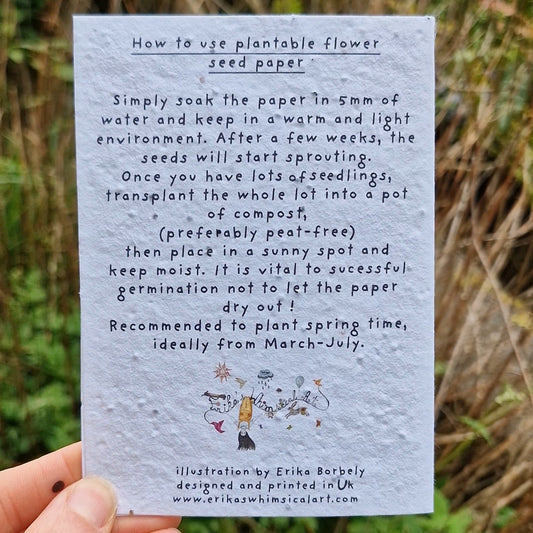 How to use plantable flower
seed paper
Simply soak the paper in 5mm of
water and keep in a warm and light
environment. After a few weeks, the
seeds will start sprouting.
Once you have lots ofseedlings,
transplant the whole lot into a pot
of compost,
(preferably peat-free)
then place in a sunny spot and
keep moist. It is vital to sucessful
germination not to let the paper
dry out !
Recommended to plant spring time,
ideally from March-July.
illustration by Erika Borbely
designed and printed in Uk
www.erikaswhimsicalart.com